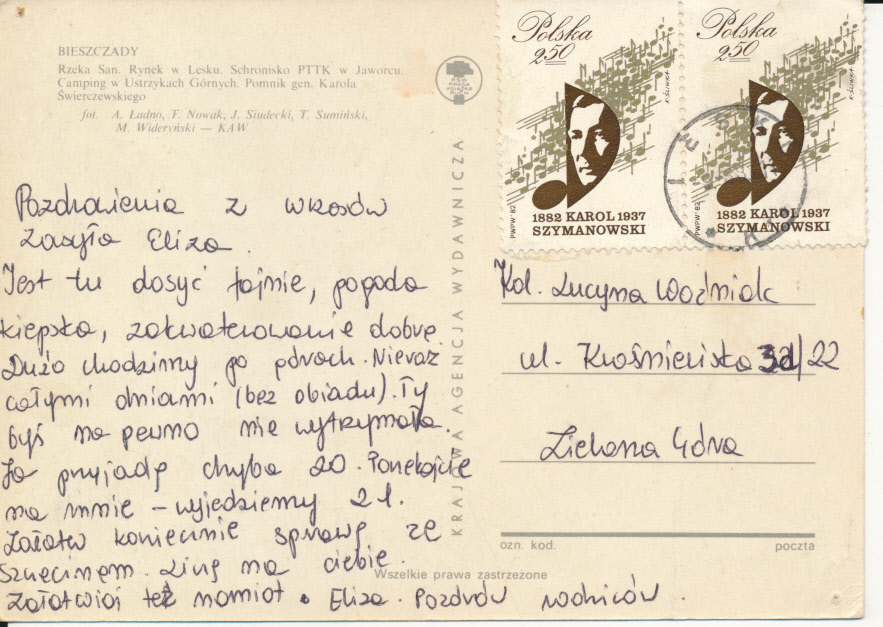 BIESZCZADY
Rzeka San. Rynek w Lesku. Schronisko PTTK w Jaworcu.
Camping w Ustrzykach Górnych. Pomnik gen. Karola
Świerczewskiego
fot. A. Ładno, T. Nowak, J. Siudecki, T. Sumiński,
M. Wideryński — KAW
Polska
250
1882 KAROL 1937
SZYMANOWSKI
PWPW '82
K. ŚLIWKA
Polska
250
1882 KAROL 1937
SZYMANOWSKI
PWPW '82
K. ŚLIWKA
Pozdrowienia z wczasów
zasyła Eliza.
Jest tu dosyć fajnie, pogoda
kiepska, zakwaterowanie dobre.
Dużo chodzimy po górach. Nieraz
całymi dniami (bez obiadu). Ty
byś na pewno nie wytrzymała.
Ja przyjadę chyba 20. Poczekajcie
na mnie – wyjedziemy 21.
Załatw koniecznie sprawę ze
Szczecinem. Liczę na ciebie.
Załatwiaj też namiot. Eliza. Pozdrów rodziców.
KRAJOWA AGENCJA WYDAWNICZA
Kol. Lucyna Woźniak
ul. Krośnieńska 3d/22
Zielona Góra
ozn. kod. poczta
Wszelkie prawa zastrzeżone